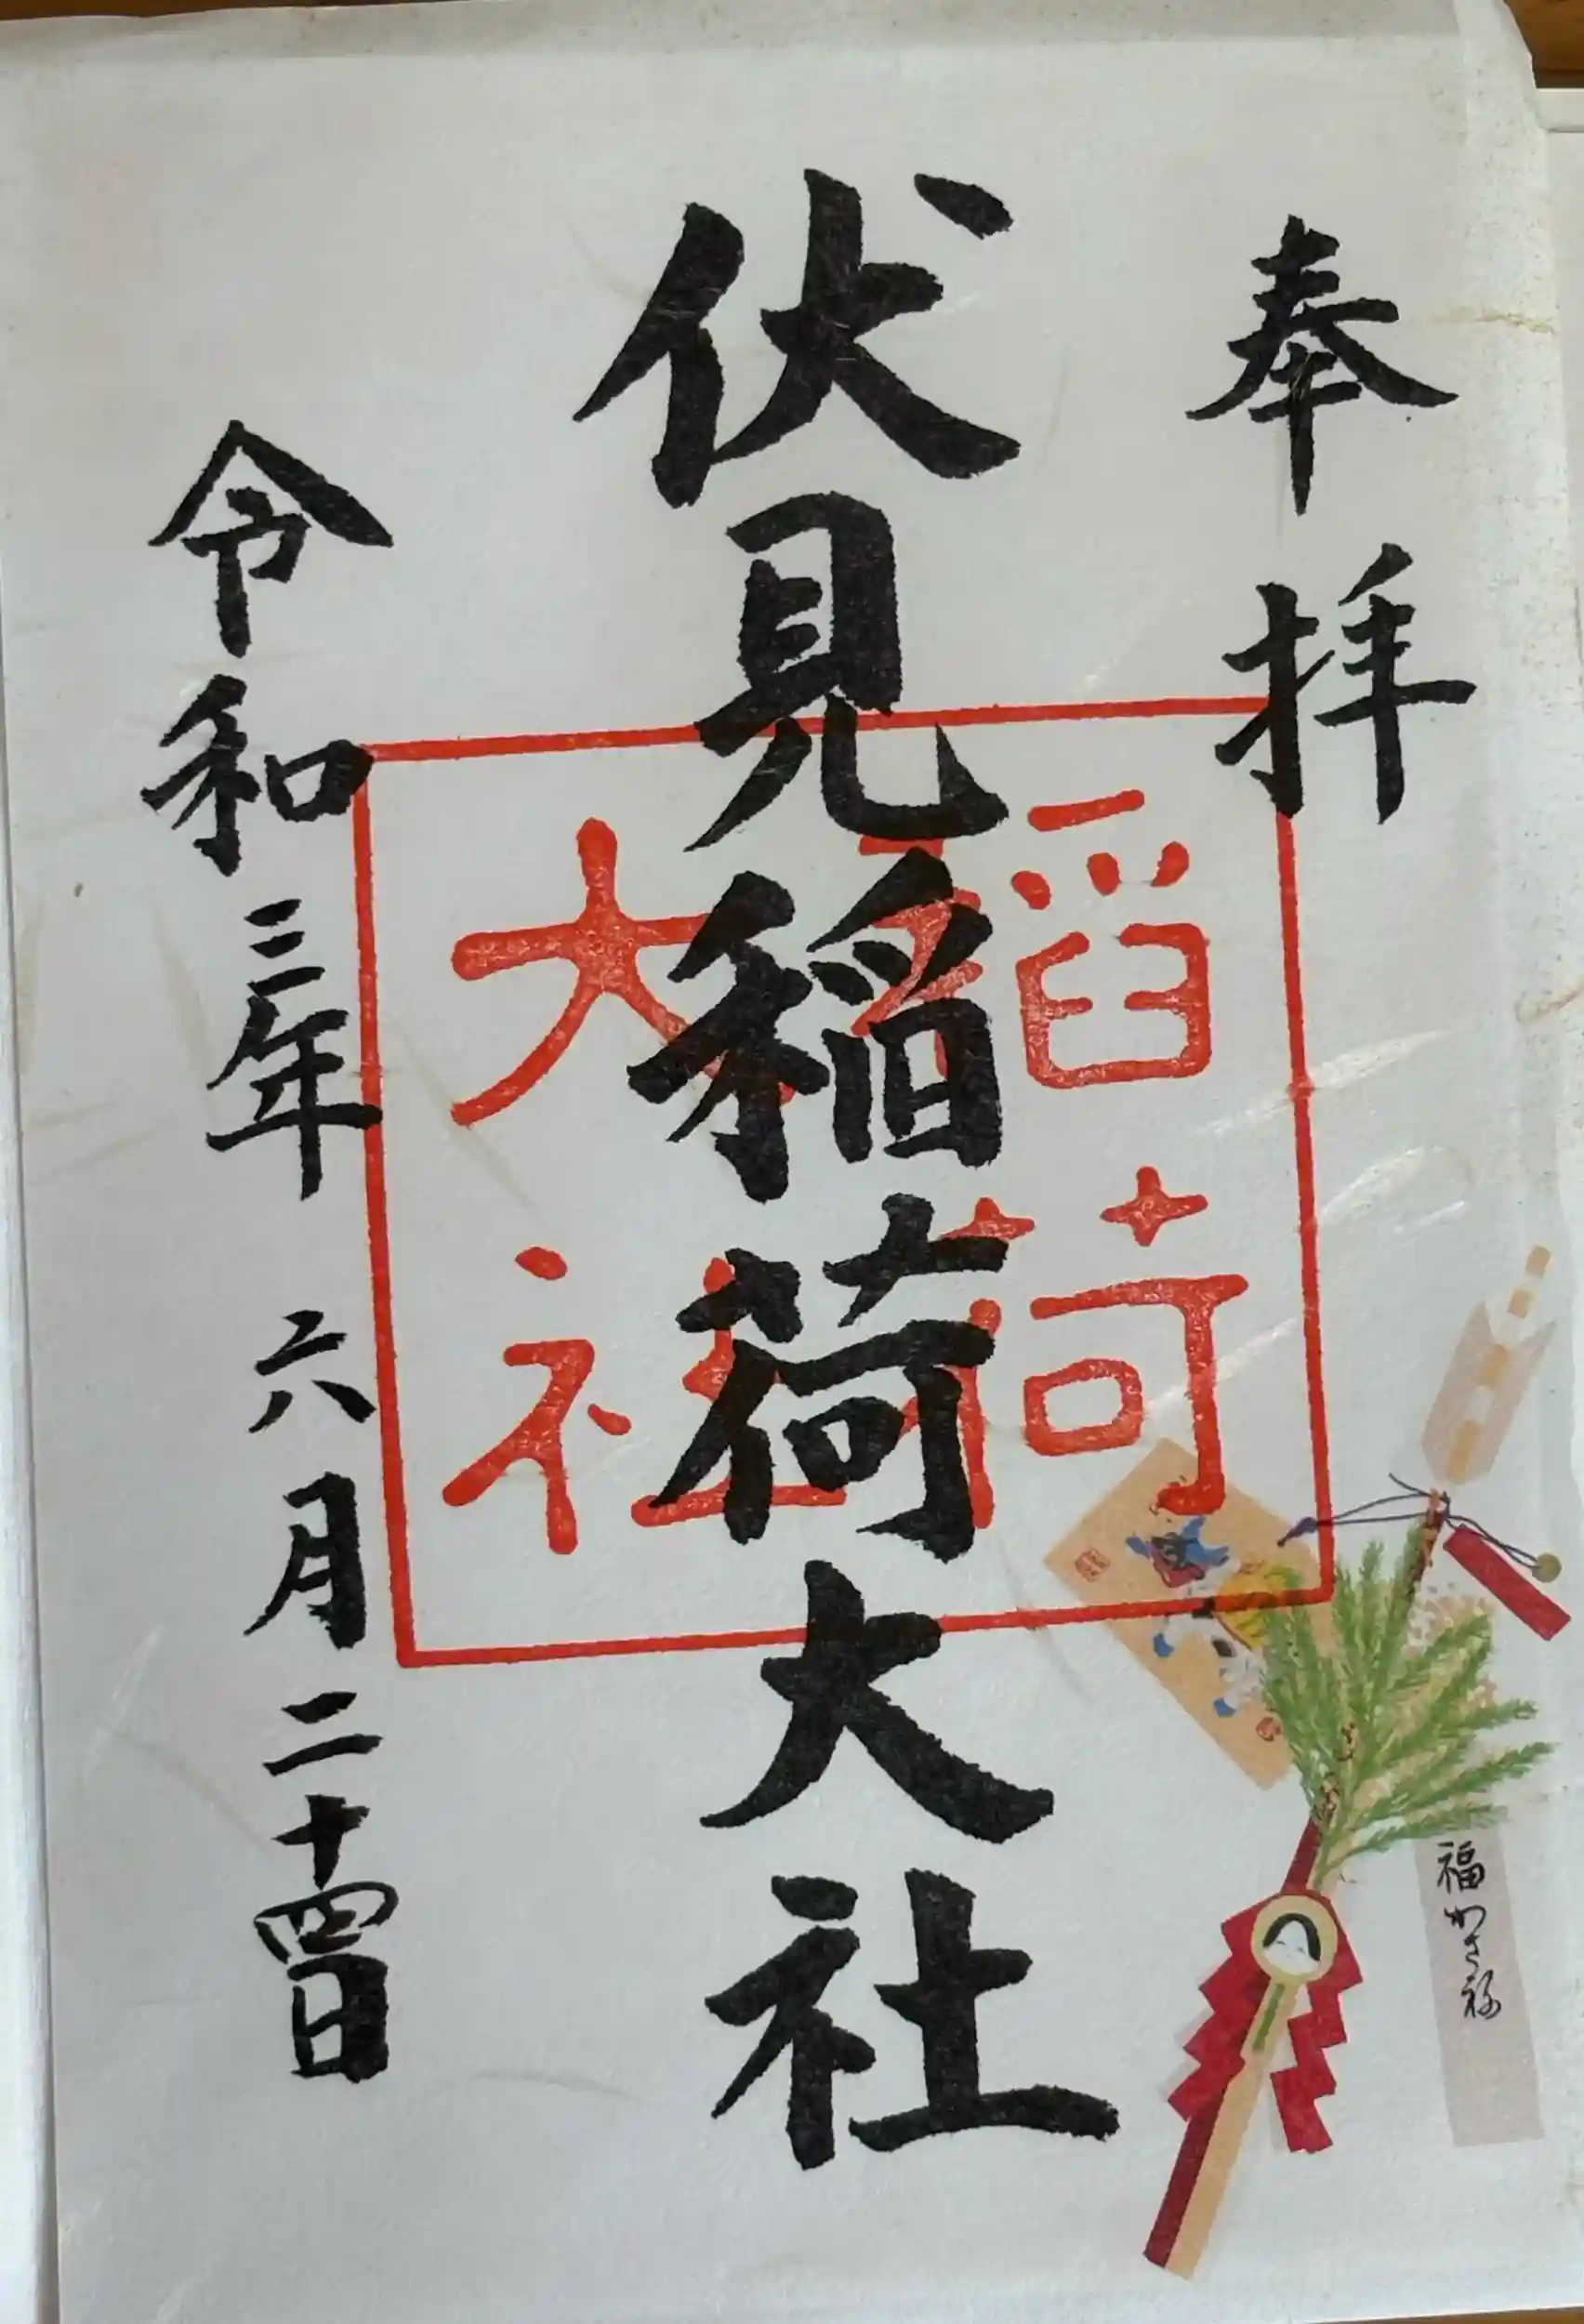 奉拝
伏見稲荷大社
稲荷
大社
令和三年六月二十四日
福かさね